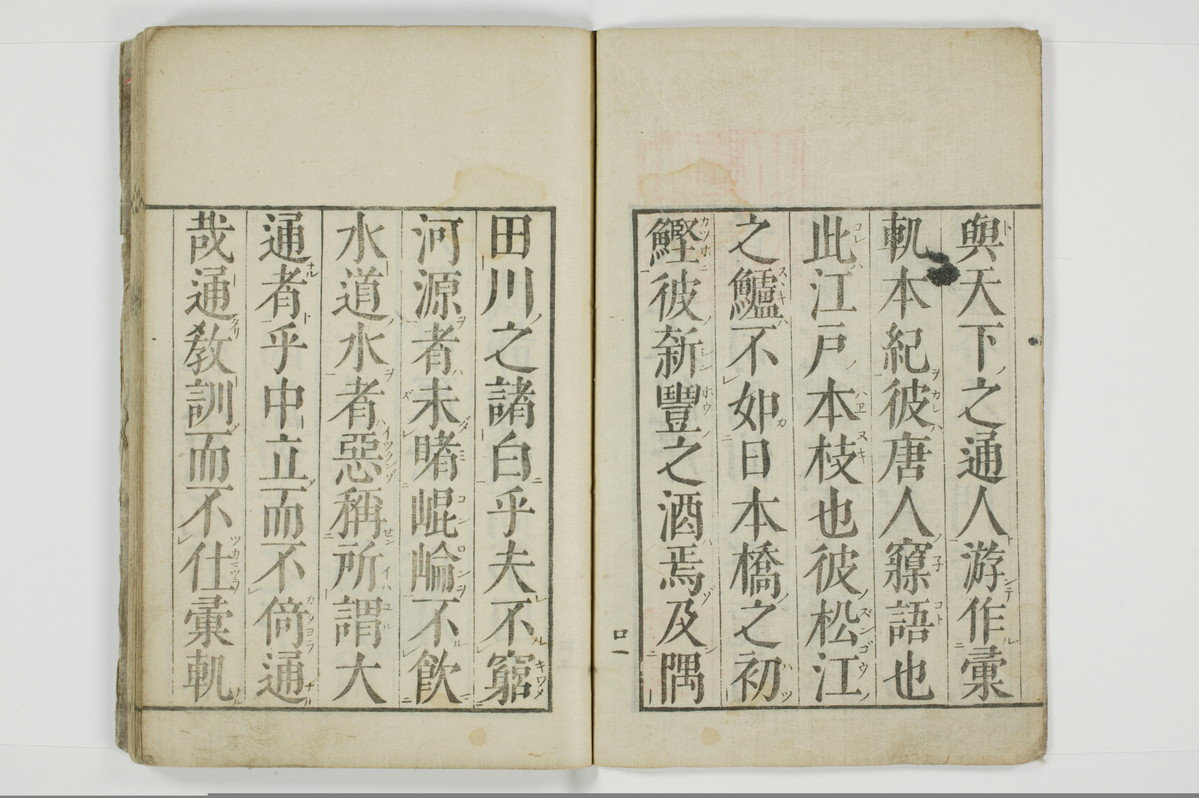 與天下之通人游作彙
軌本紀彼唐人寱語也
此江戸本枝也彼松江
之鱸不如日本橋之初
鰹彼新豐之酒焉及隅
口一
田川之諸白乎夫不窮
河源者未睹崐崘不飲
水道水者惡稱所謂大
通者乎中立而不倚通
哉通教訓而不仕彙軌